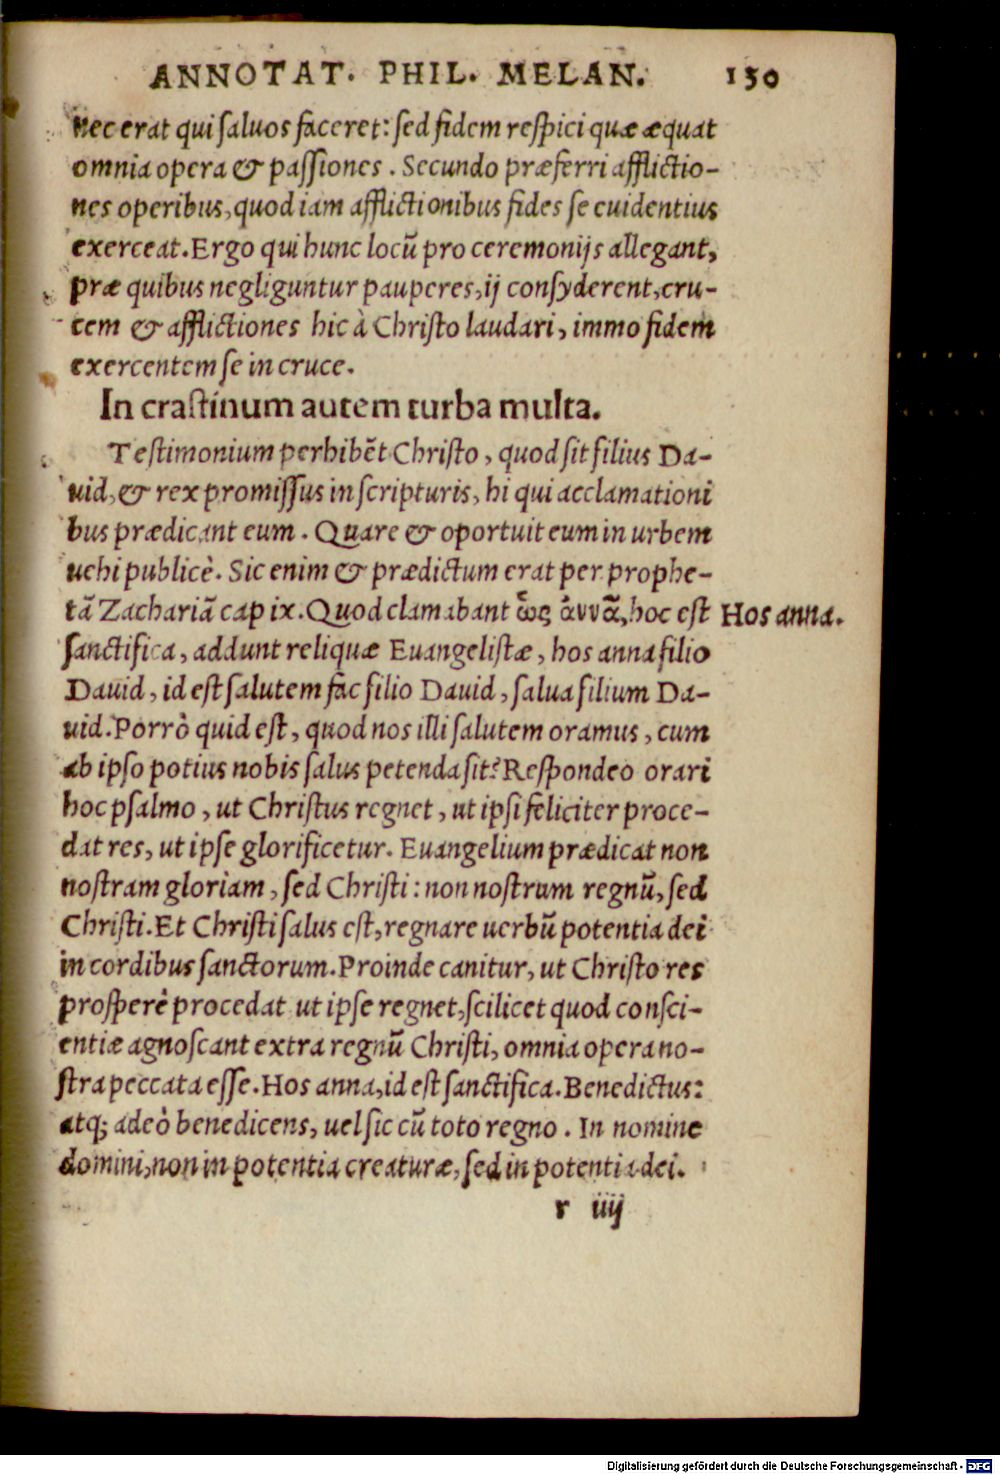 ANNOTAT. PHIL. MELAN. 150
nec erat qui saluos faceret: sed fidem respici quæ æquat
omnia opera & passiones. Secundo præferri afflictio-
nes operibus, quod iam afflictionibus fides se euidentius
exerceat. Ergo qui hunc locũ pro ceremonijs allegant,
præ quibus negliguntur pauperes, ij consyderent, cru-
cem & afflictiones hic à Christo laudari, immo fidem
exercentem se in cruce.
In crastinum autem turba multa.
Testimonium perhibẽt Christo, quod sit filius Da-
uid, & rex promissus in scripturis, hi qui acclamationi
bus prædicant eum. Quare & oportuit eum in urbem
uehi publicè. Sic enim & prædictum erat per prophe-
tã Zachariã cap ix. Quod clamabant ὧς ἀννᾶ, hoc est Hos anna.
sanctifica, addunt reliquæ Euangelistæ, hos anna filio
Dauid, id est salutem fac filio Dauid, salua filium Da-
uid. Porrò quid est, quod nos illi salutem oramus, cum
ab ipso potius nobis salus petenda sit? Respondeo orari
hoc psalmo, ut Christus regnet, ut ipsi feliciter proce-
dat res, ut ipse glorificetur. Euangelium prædicat non
nostram gloriam, sed Christi: non nostrum regnũ, sed
Christi. Et Christi salus est, regnare uerbũ potentia dei
in cordibus sanctorum. Proinde canitur, ut Christo res
prosperè procedat ut ipse regnet, scilicet quod consci-
entiæ agnoscant extra regnũ Christi, omnia opera no-
stra peccata esse. Hos anna, id est sanctifica. Benedictus:
atq; adeò benedicens, uel sic cũ toto regno. In nomine
domini, non in potentia creaturæ, sed in potentia dei.
r iiij
Digitalisierung gefördert durch die Deutsche Forschungsgemeinschaft - DFG